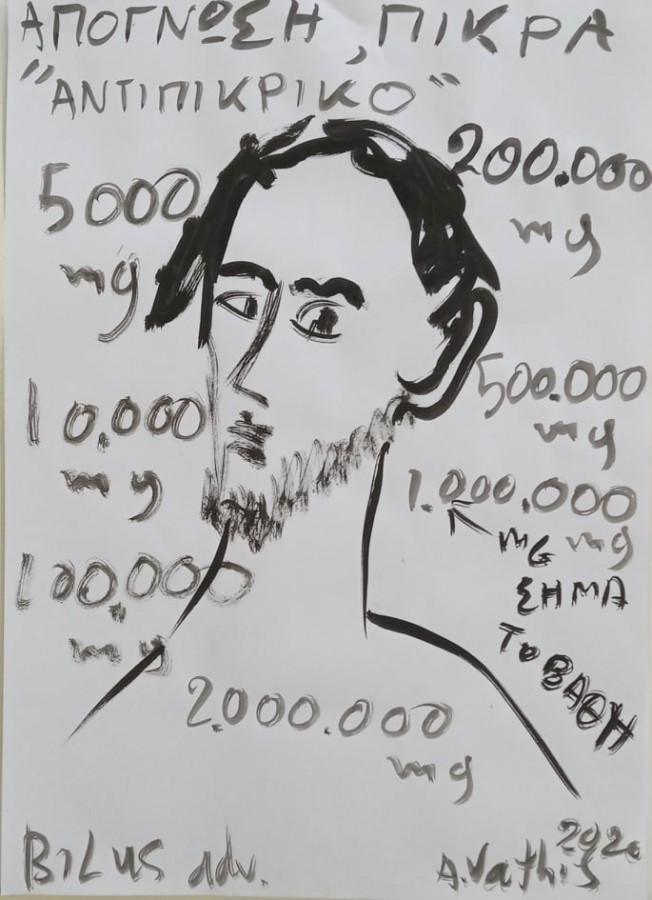 ΑΠΟΓΝΩΣΗ, ΠΙΚΡΑ
"ΑΝΤΙΠΙΚΡΙΚΟ"
5000
mg
200.000
mg
10.000
mg
500.000
mg
1.000.000
mg
MG
ΣΗΜΑ
ΤΟ ΒΑΘΗ
100.000
mg
2.000.000
mg
BILUS adv.
A.Vathis
2020